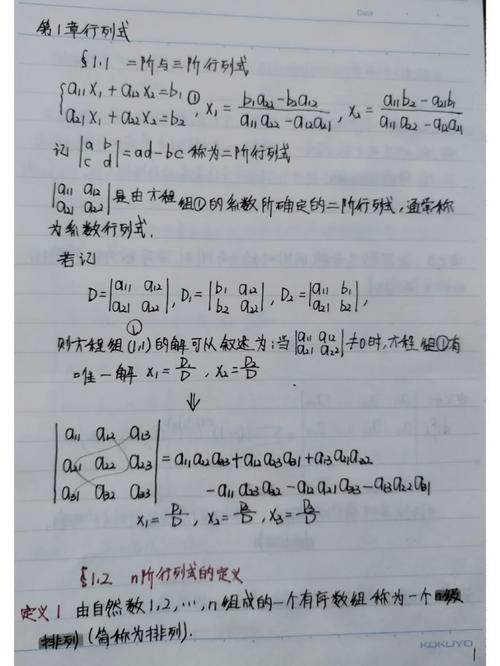 Date
第1章行列式
§1.1 二阶与三阶行列式
{a11x1+a12x2=b1 a21x1+a22x2=b2 ①, x1=(b1a22-b2a12)/(a11a22-a12a21), x2=(a11b2-a21b1)/(a11a22-a12a21)
记 |a b; c d|=ad-bc 称为二阶行列式
|a11 a12; a21 a22| 是由方程组①的系数所确定的二阶行列式,通常称
为系数行列式.
若记
D=|a11 a12; a21 a22|, D1=|b1 a12; b2 a22|, D2=|a11 b1; a21 b2|,
①
则方程组(1,1)的解可以叙述为:当|a11 a12; a21 a22|≠0时,方程组①有
唯一解 x1=D1/D, x2=D2/D
⇓
|a11 a12 a13; a21 a22 a23; a31 a32 a33|=a11a22a33+a12a23a31+a13a21a32
-a11a23a32-a12a21a33-a13a22a31
x1=D1/D, x2=D2/D, x3=D3/D
§1.2 n阶行列式的定义
定义1 由自然数1,2,…,n组成的一个有序数组称为一个n级
排列(简称为排列).
KOKUYO
1